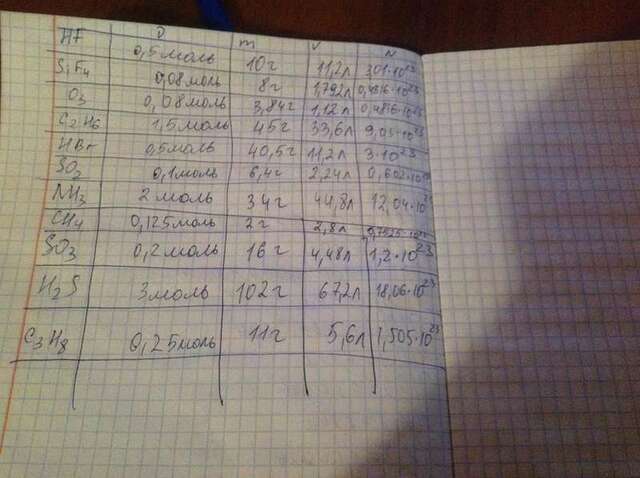 HF 0,5моль 10г 11,2л 3,01·10²³
SiF4 0,08моль 8г 1,792л
O3 0,08моль 3,84г 1,12л
C2H6 1,5моль 45г 33,6л
HBr 0,5моль 40,5г 11,2л 3·10²³
SO2 0,1моль 6,4г 2,24л
NH3 2моль 34г 44,8л
CH4 0,125моль 2г 2,8л
SO3 0,2моль 16г 4,48л 1,2·10²³
H2S 3моль 102г 67,2л 18,06·10²³
C3H8 0,25моль 11г 5,6л 1,505·10²³